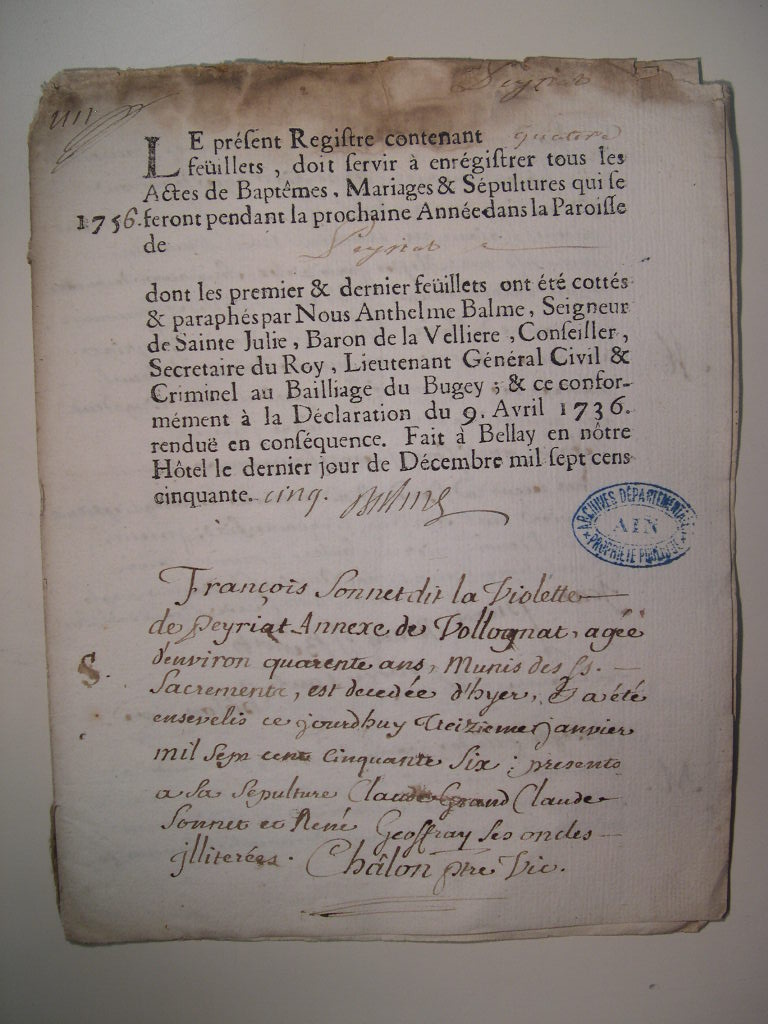 Peyriat
LE préſent Regiſtre contenant quatre
feüillets, doit ſervir à enrégiſtrer tous les
Actes de Baptêmes, Mariages & Sépultures qui ſe
1756. feront pendant la prochaine Année dans la Paroiſſe
de Peyriat
dont les premier & dernier feüillets ont été cottés
& paraphés par Nous Anthelme Balme, Seigneur
de Sainte Julie, Baron de la Velliere, Conſeiller,
Secretaire du Roy, Lieutenant Général Civil &
Criminel au Bailliage du Bugey; & ce confor-
mément à la Déclaration du 9. Avril 1736.
renduë en conſéquence. Fait à Bellay en nôtre
Hôtel le dernier jour de Décembre mil ſept cens
cinquante. cinq. Balme
ARCHIVES DÉPARTEMENTALES
AIN
PROPRIÉTÉ PUBLIQUE
François Sonnet dit la Violette
de Peyriat Annexe de Vollognat, agée
S. d'environ quarente ans, Munis des Ss.
Sacrements, est decedée d'hyer, & a été
ensevelis ce jourdhuy treizieme janvier
mil sept cent cinquante Six: presents
a Sa Sepulture Claude Grand Claude
Sonnet et René Geoffray Ses oncles
jlliterées. Châlon ptre Vic.